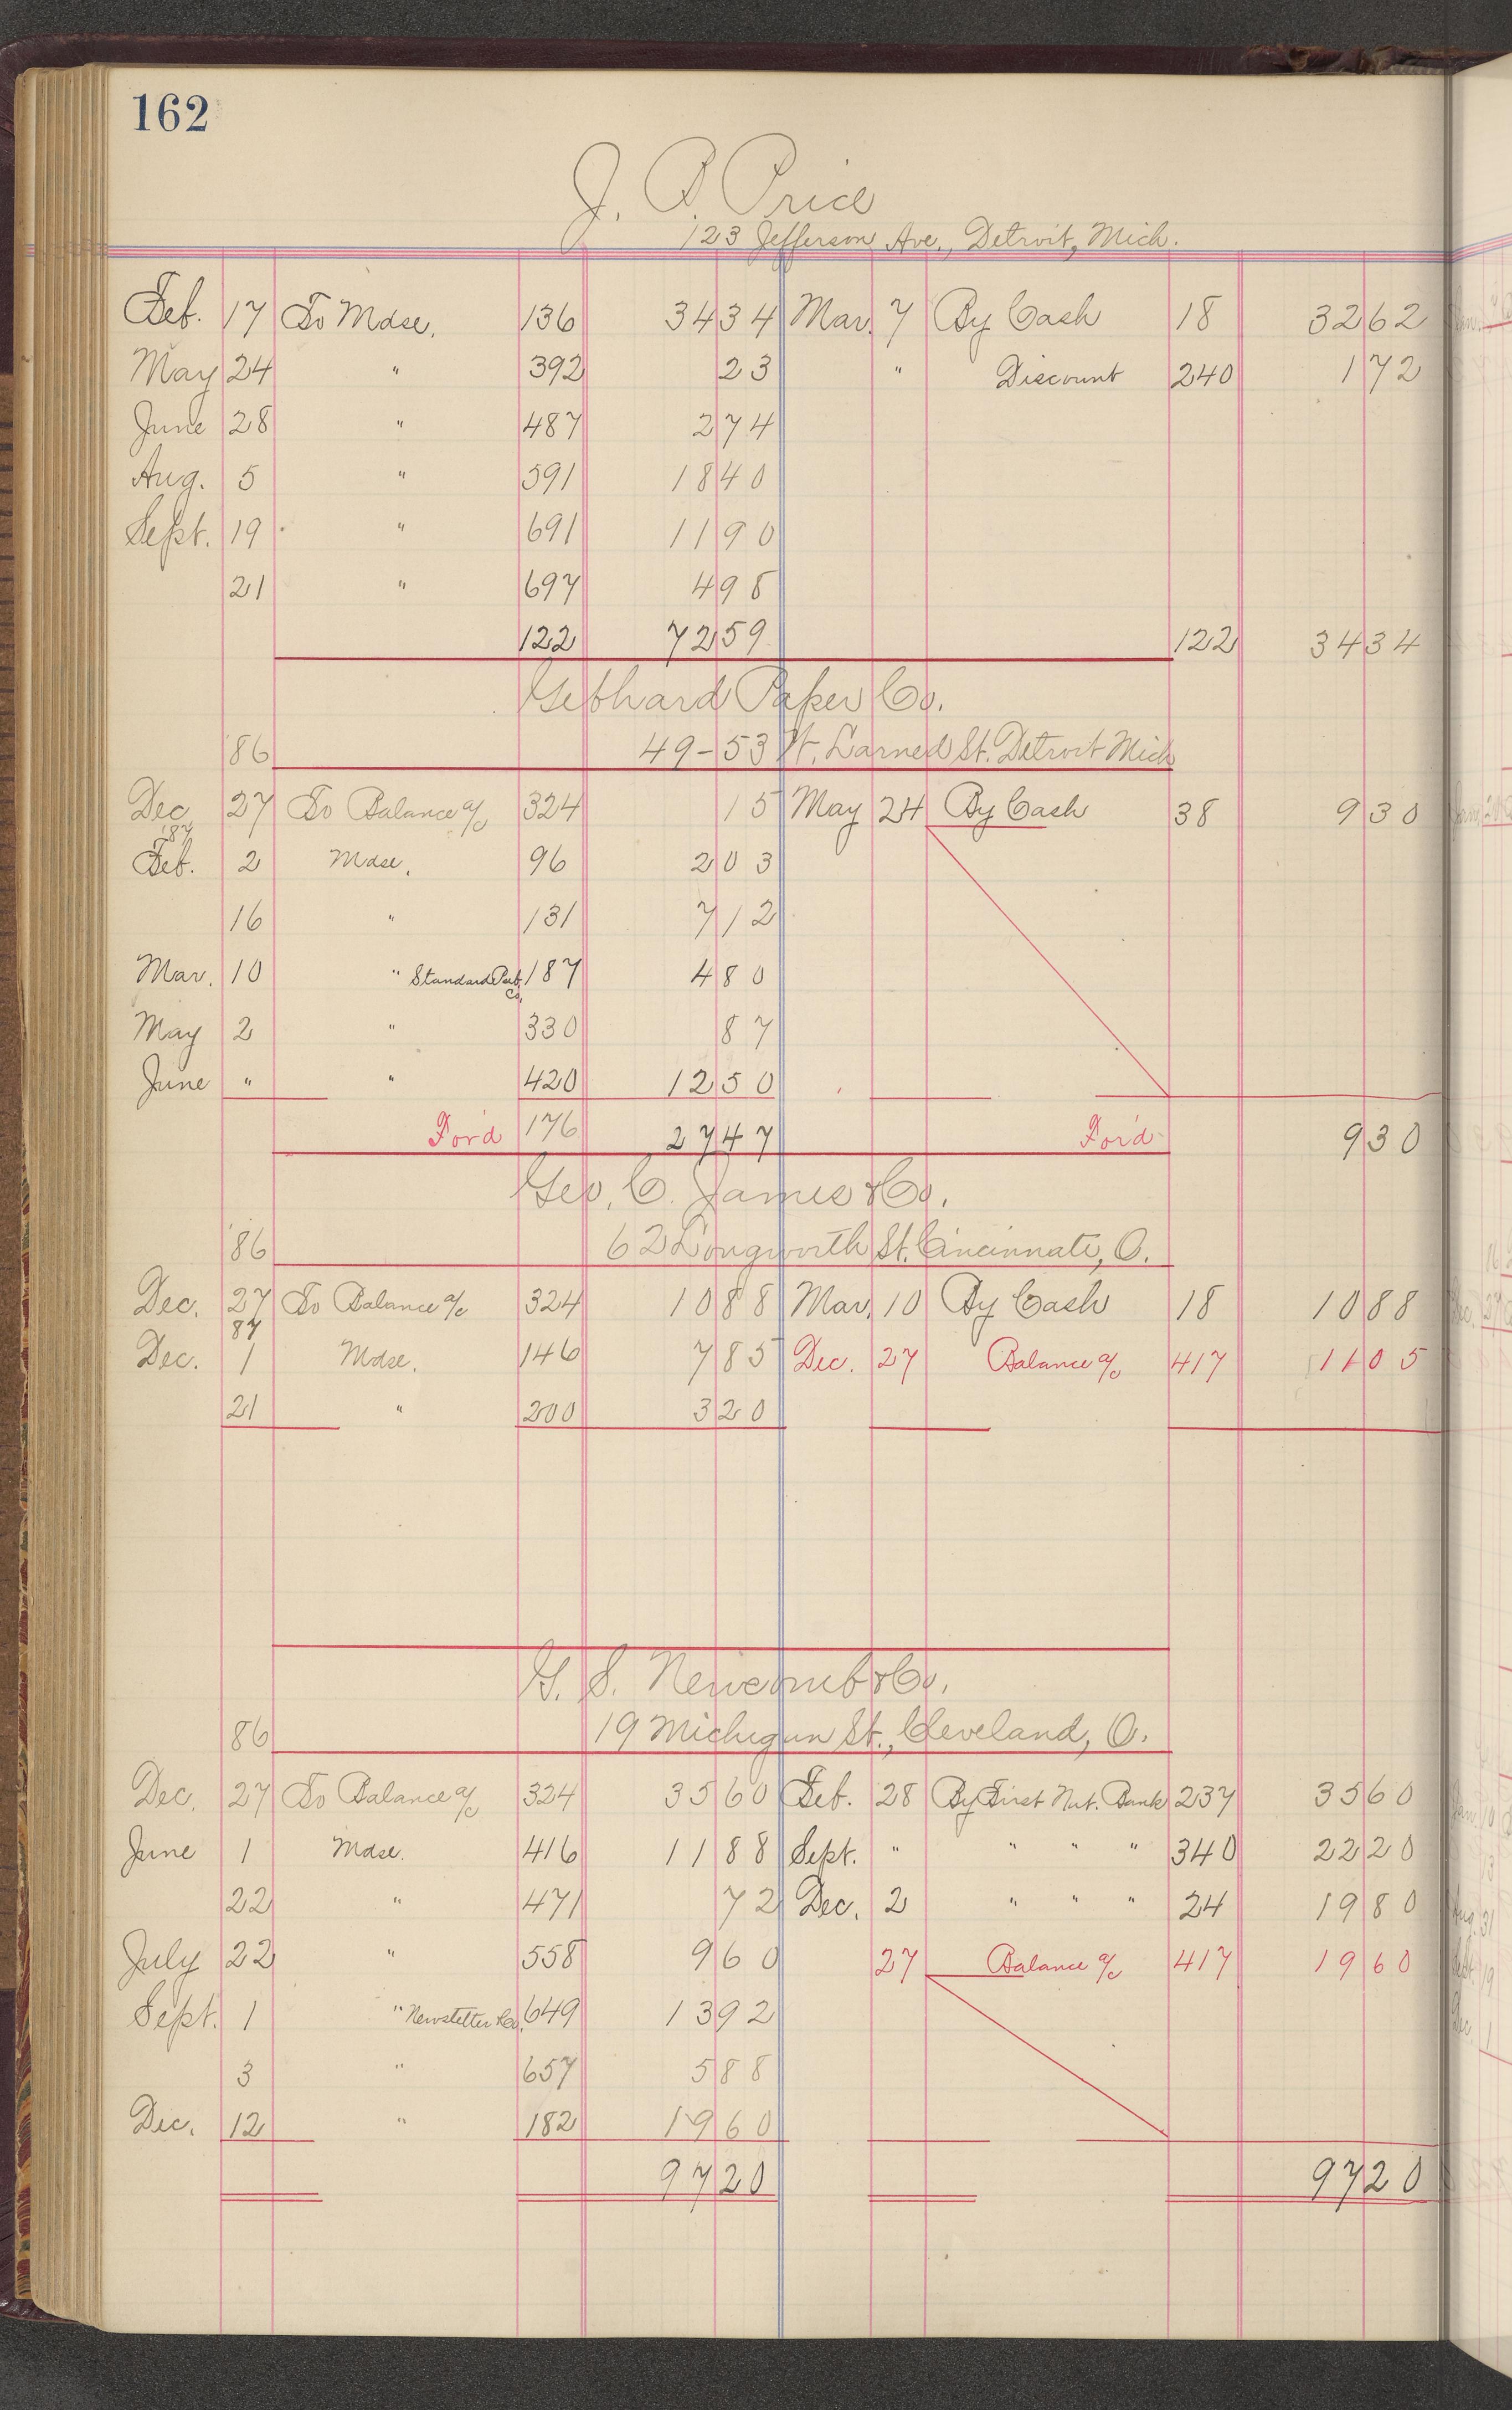 162
J. P. Price
123 Jefferson Ave., Detroit, Mich.
Feb. 17 To Mdse. 136 34 34 Mar. 7 By Cash 18 32 62
May 24 " 392 23 " Discount 240 1 72
June 28 " 487 2 74
Aug. 5 " 591 18 40
Sept. 19 " 691 11 90
21 " 697 4 98
122 72 59 122 34 34
Gebhard Paper Co.
'86 49-53 W. Larned St. Detroit Mich
Dec 27 To Balance a/c 324 15 May 24 By Cash 38 9 30
'87
Feb. 2 Mdse. 96 2 03
16 " 131 7 12
Mar. 10 " Standard Pub. Co. 187 4 80
May 2 " 330 87
June " " 420 12 50
For'd 176 27 47 For'd 9 30
Geo. C. James & Co.
'86 62 Longworth St. Cincinnati, O.
Dec. 27 To Balance a/c 324 10 88 Mar. 10 By Cash 18 10 88
87
Dec. 1 Mdse. 146 7 85 Dec. 27 Balance a/c 417 11 05
21 " 200 3 20
G. S. Newcomb & Co.
86 19 Michigan St., Cleveland, O.
Dec. 27 To Balance a/c 324 35 60 Feb. 28 By First Nat. Bank 237 35 60
June 1 Mdse. 416 11 88 Sept. " " " " 340 22 20
22 " 471 72 Dec. 2 " " " 24 19 80
July 22 " 558 9 60 27 Balance a/c 417 19 60
Sept. 1 " Newstetter & Co. 649 13 92
3 " 657 5 88
Dec. 12 " 182 19 60
97 20 97 20